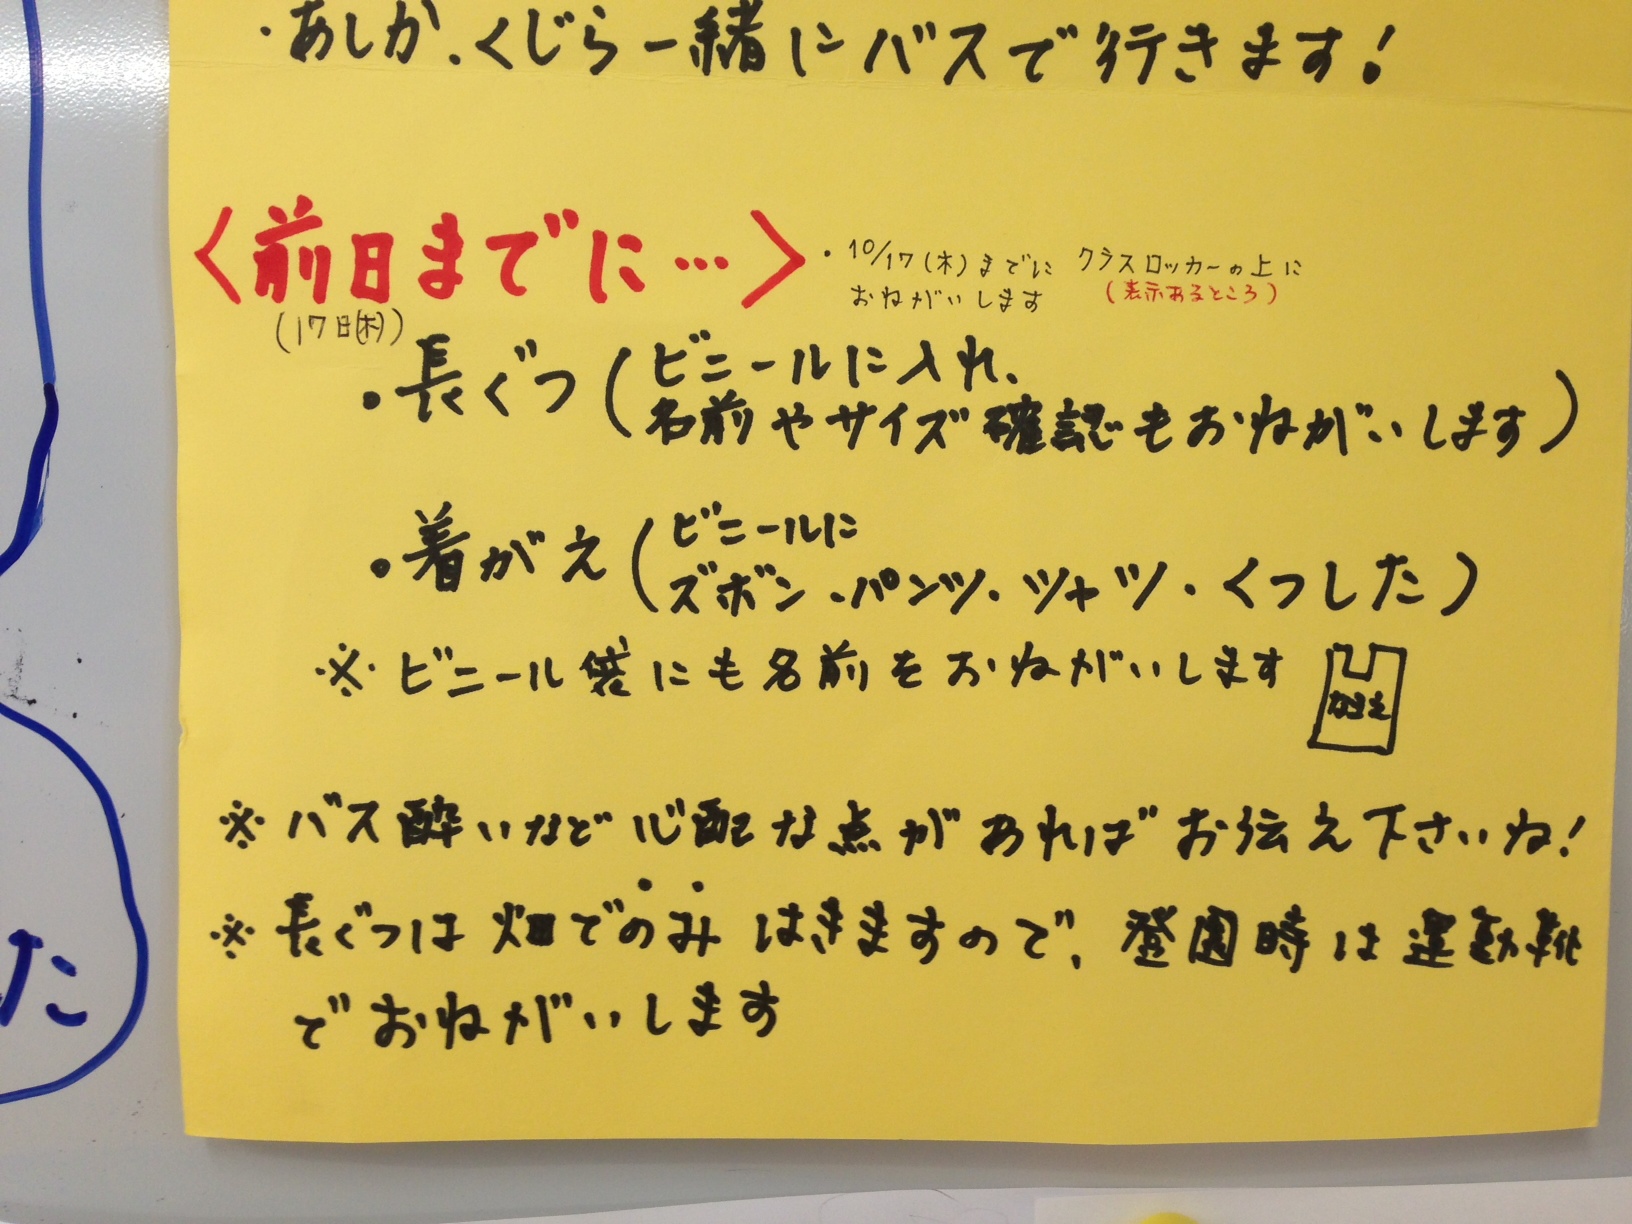 ・あしか、くじら一緒にバスで行きます!
〈前日までに…〉
(17日(木))
・10/17(木)までに クラスロッカーの上に
おねがいします (表示あるところ)
・長ぐつ(ビニールに入れ、
名前やサイズ確認もおねがいします)
・着がえ(ビニールに
ズボン・パンツ・シャツ・くつした)
※ビニール袋にも名前をおねがいします
なまえ
※バス酔いなど心配な点があればお伝え下さいね!
※長ぐつは畑でのみはきますので、登園時は運動靴
でおねがいします
た